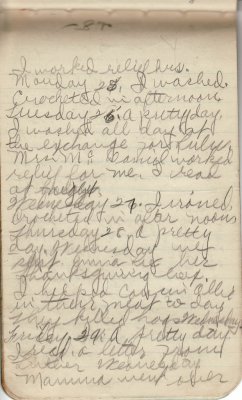 -87-
I worked relief hrs.
Monday 25. I washed.
Crocheted in afternoon
Tuesday 26. a pretty day.
I washed all day at
the exchange for Ruby.
Mrs. Mc Daniel worked
relief for me. I read
at night.
Wednesday 27. I ironed.
Crocheted in after noon.
Thursday 28. a pretty
day. Wednesday
sent Emma at her
Thanksgiving box.
I helped
in their meat to day
they killed hogs Wednesday
Friday 29. a pretty day.
I rec'd a letter from
Wednesday
Mamma went over